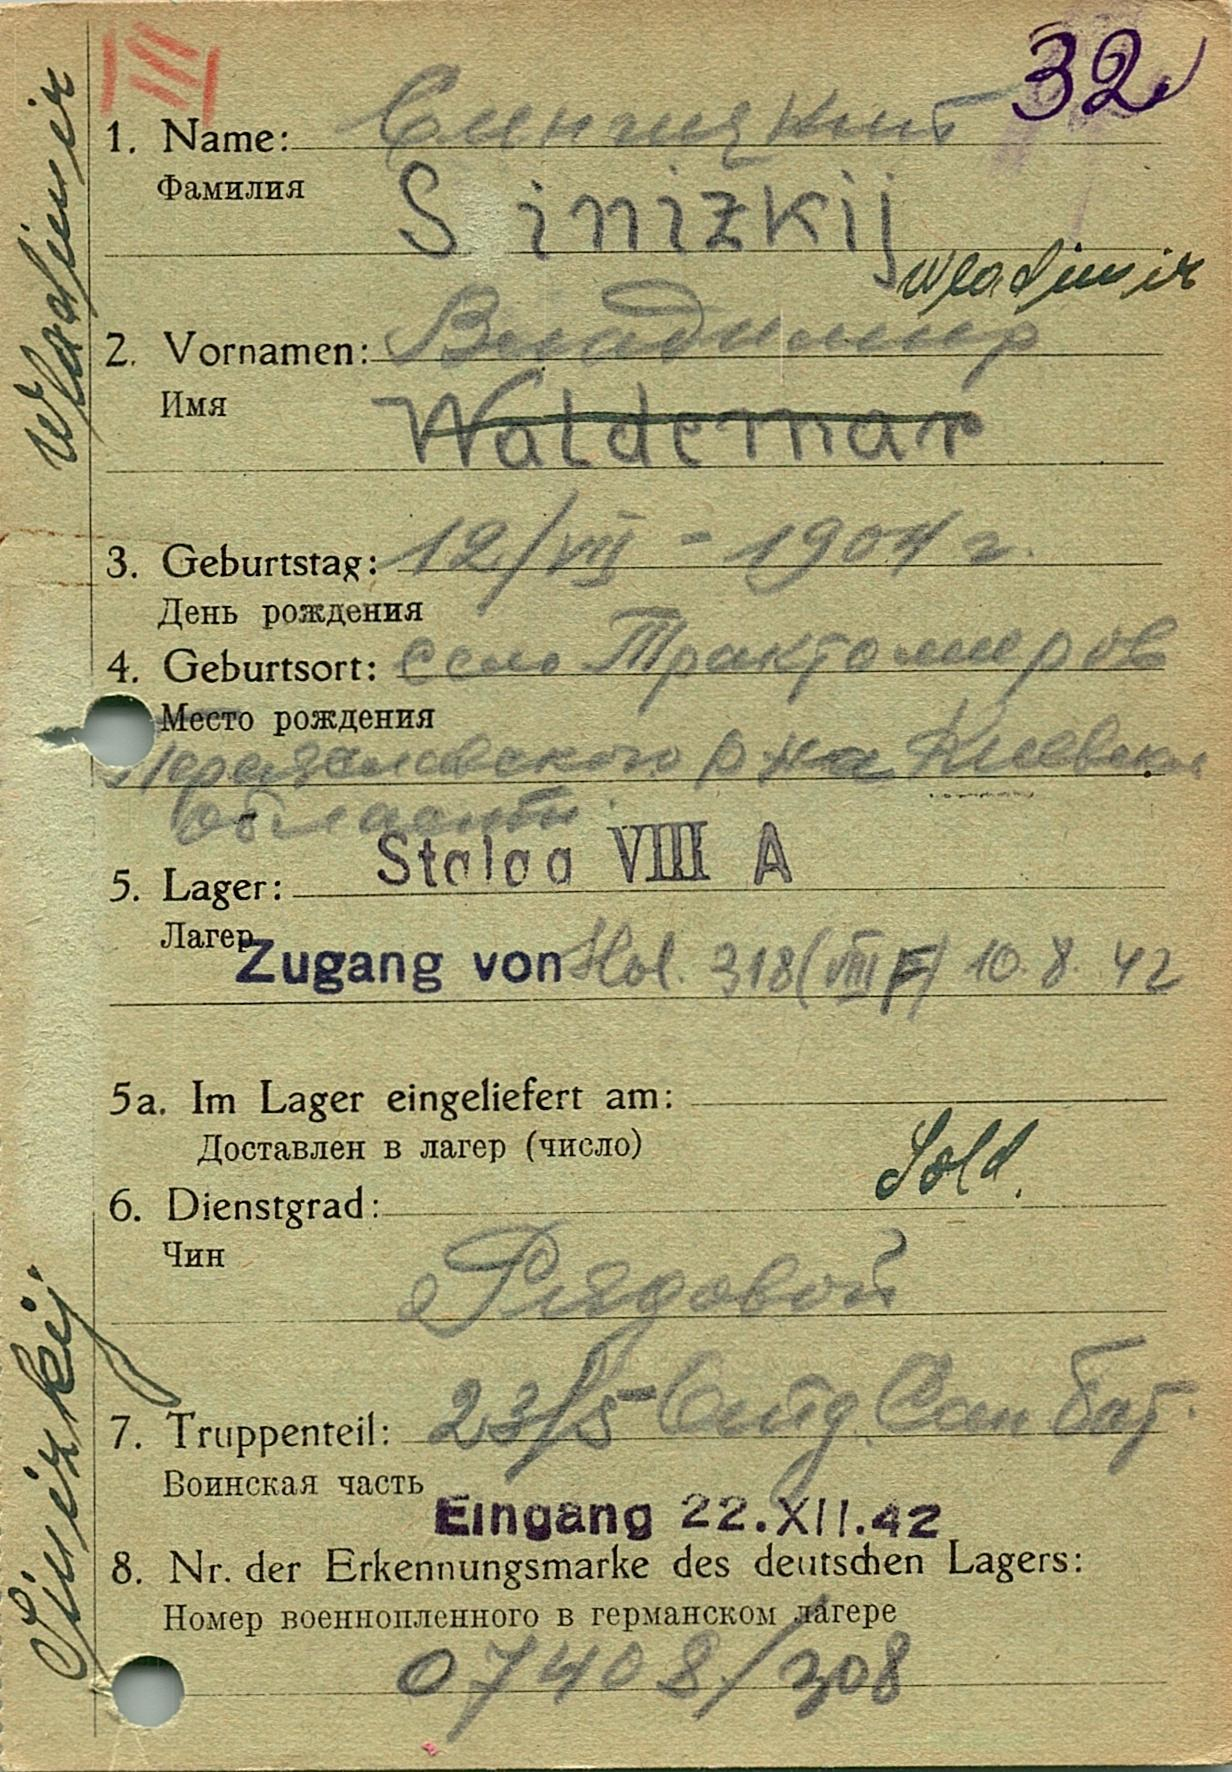 III
32
1. Name: Синицкий
Фамилия
Sinizkij
Wladimir
2. Vornamen: Владимир
Имя
Waldemar
3. Geburtstag: 12/VII - 1904 г.
День рождения
4. Geburtsort: село Трактомиров
Место рождения
Переяславского р-на Киевской
области.
5. Lager: Stalag VIII A
Лагер
Zugang von 318 (VIII F) 10.8.42
5a. Im Lager eingeliefert am:
Доставлен в лагер (число)
Sold.
6. Dienstgrad:
Чин
Рядовой
7. Truppenteil: 23/5 Сан Бат.
Воинская часть
Eingang 22.XII.42
8. Nr. der Erkennungsmarke des deutschen Lagers:
Номер военнопленного в германском лагере
07408/308
Sinizkij Wladimir